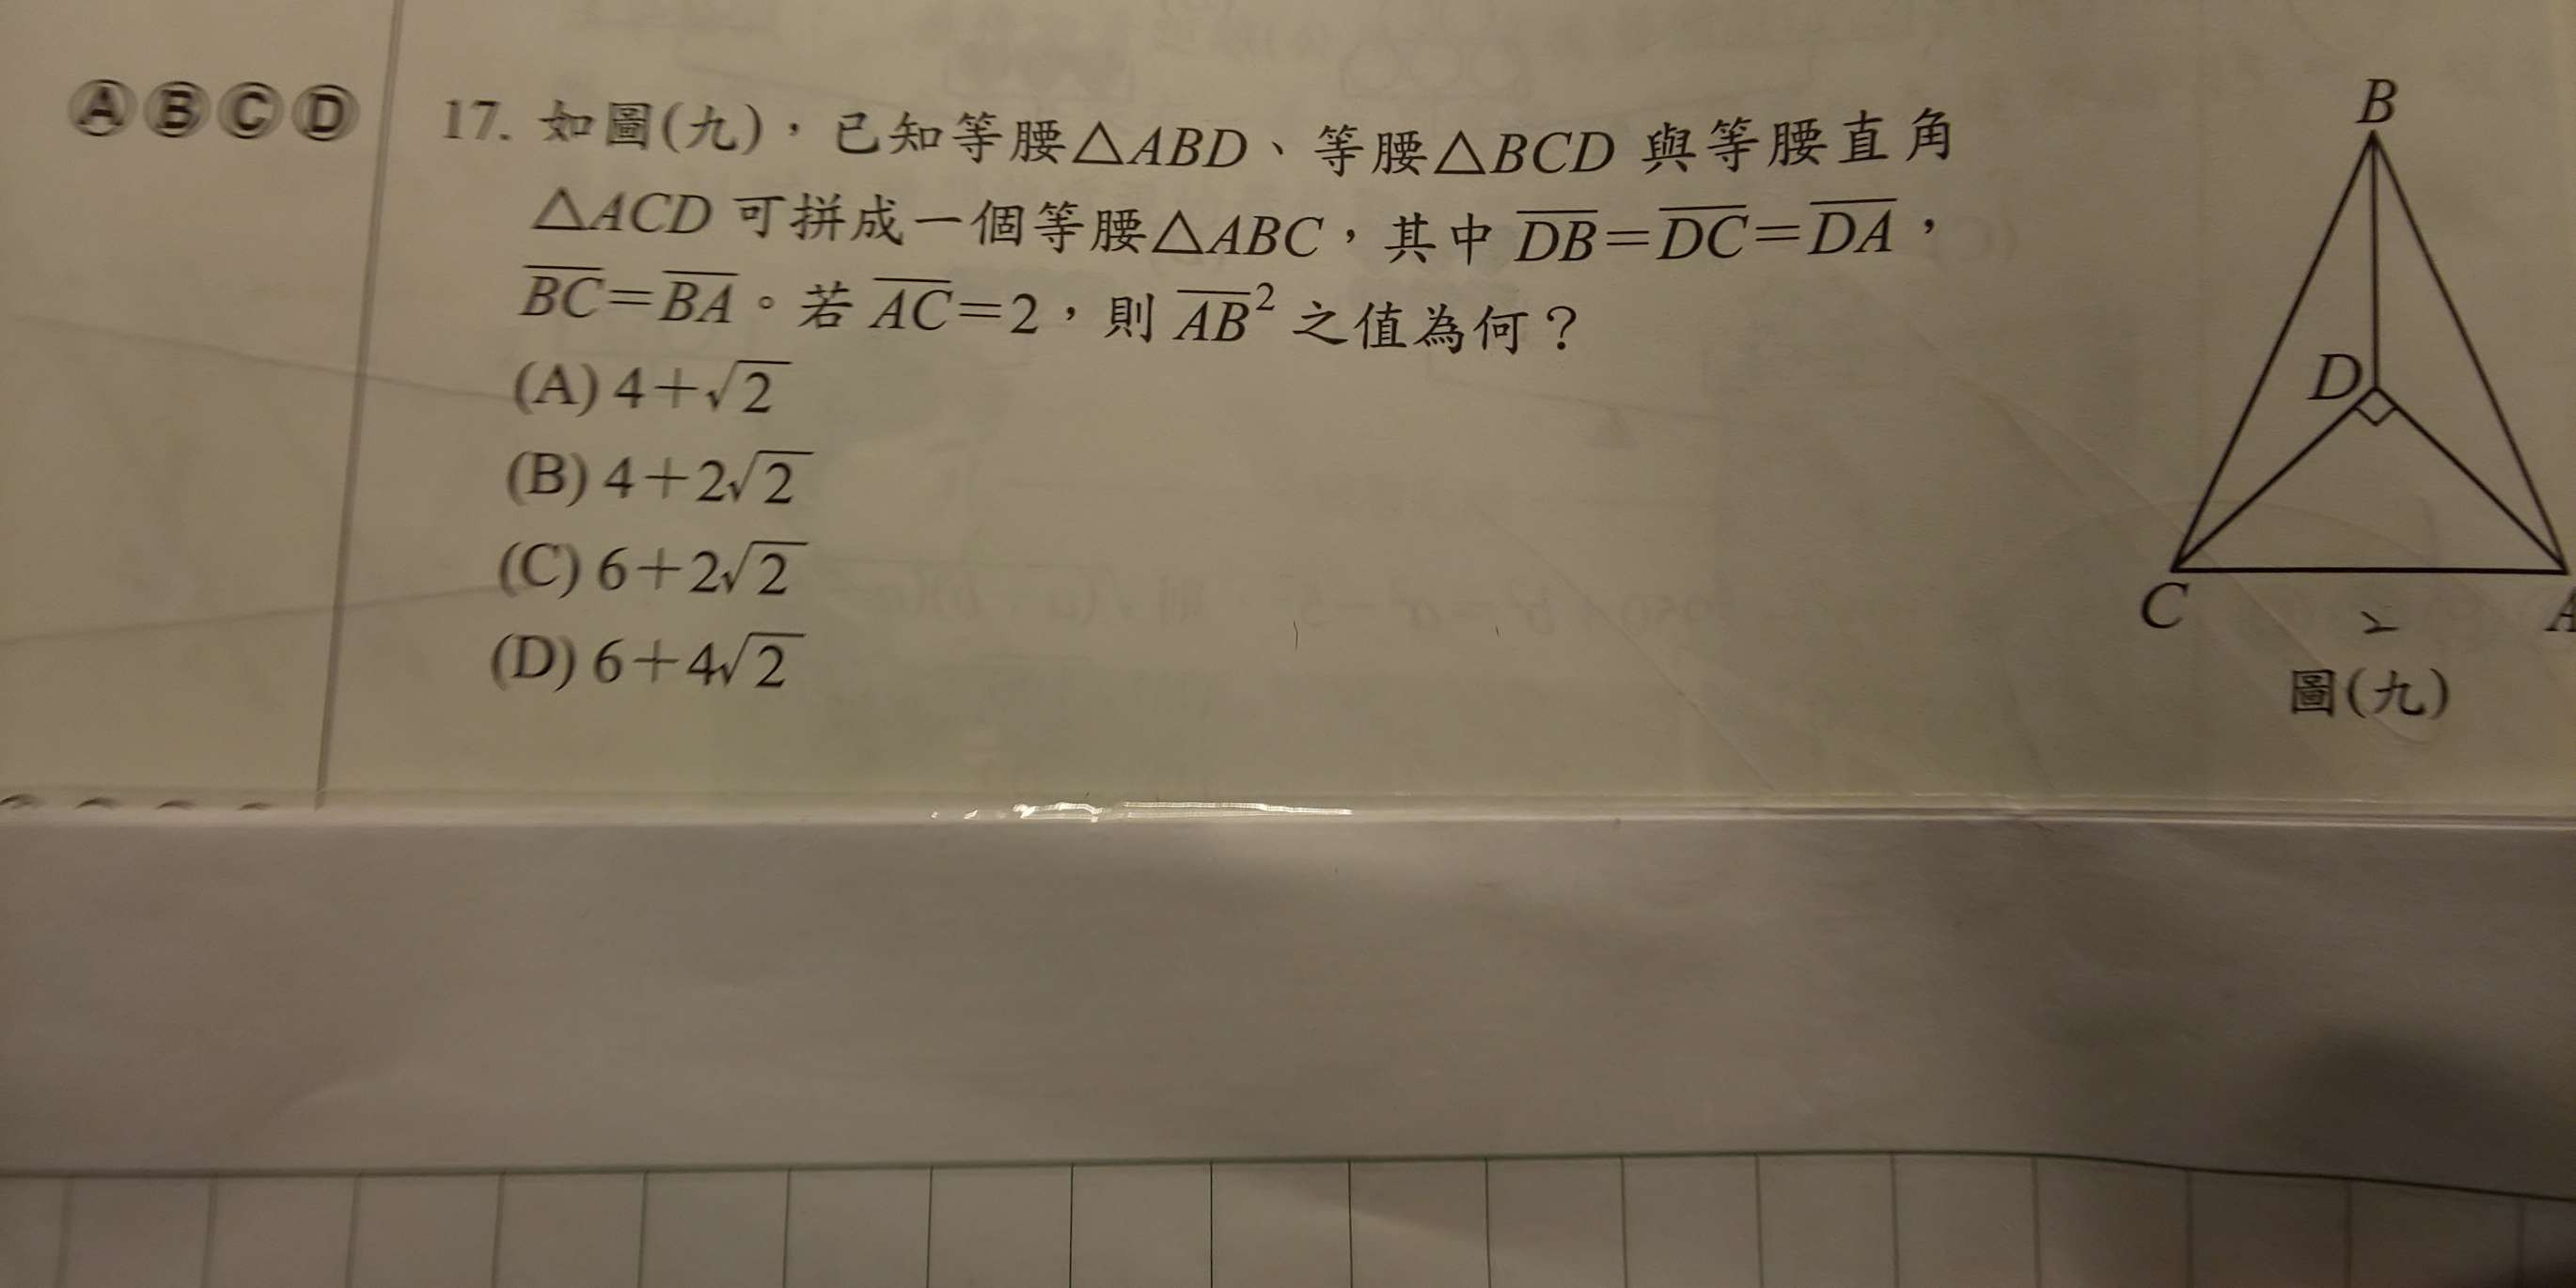 Ⓐ Ⓑ Ⓒ Ⓓ
17. 如圖(九)，已知等腰△ABD、等腰△BCD 與等腰直角
△ACD 可拼成一個等腰△ABC，其中 \overline{DB}=\overline{DC}=\overline{DA}，
\overline{BC}=\overline{BA}。若 \overline{AC}=2，則 \overline{AB}² 之值為何？
(A) 4+√2
(B) 4+2√2
(C) 6+2√2
(D) 6+4√2
B
D
C
A
2
圖(九)